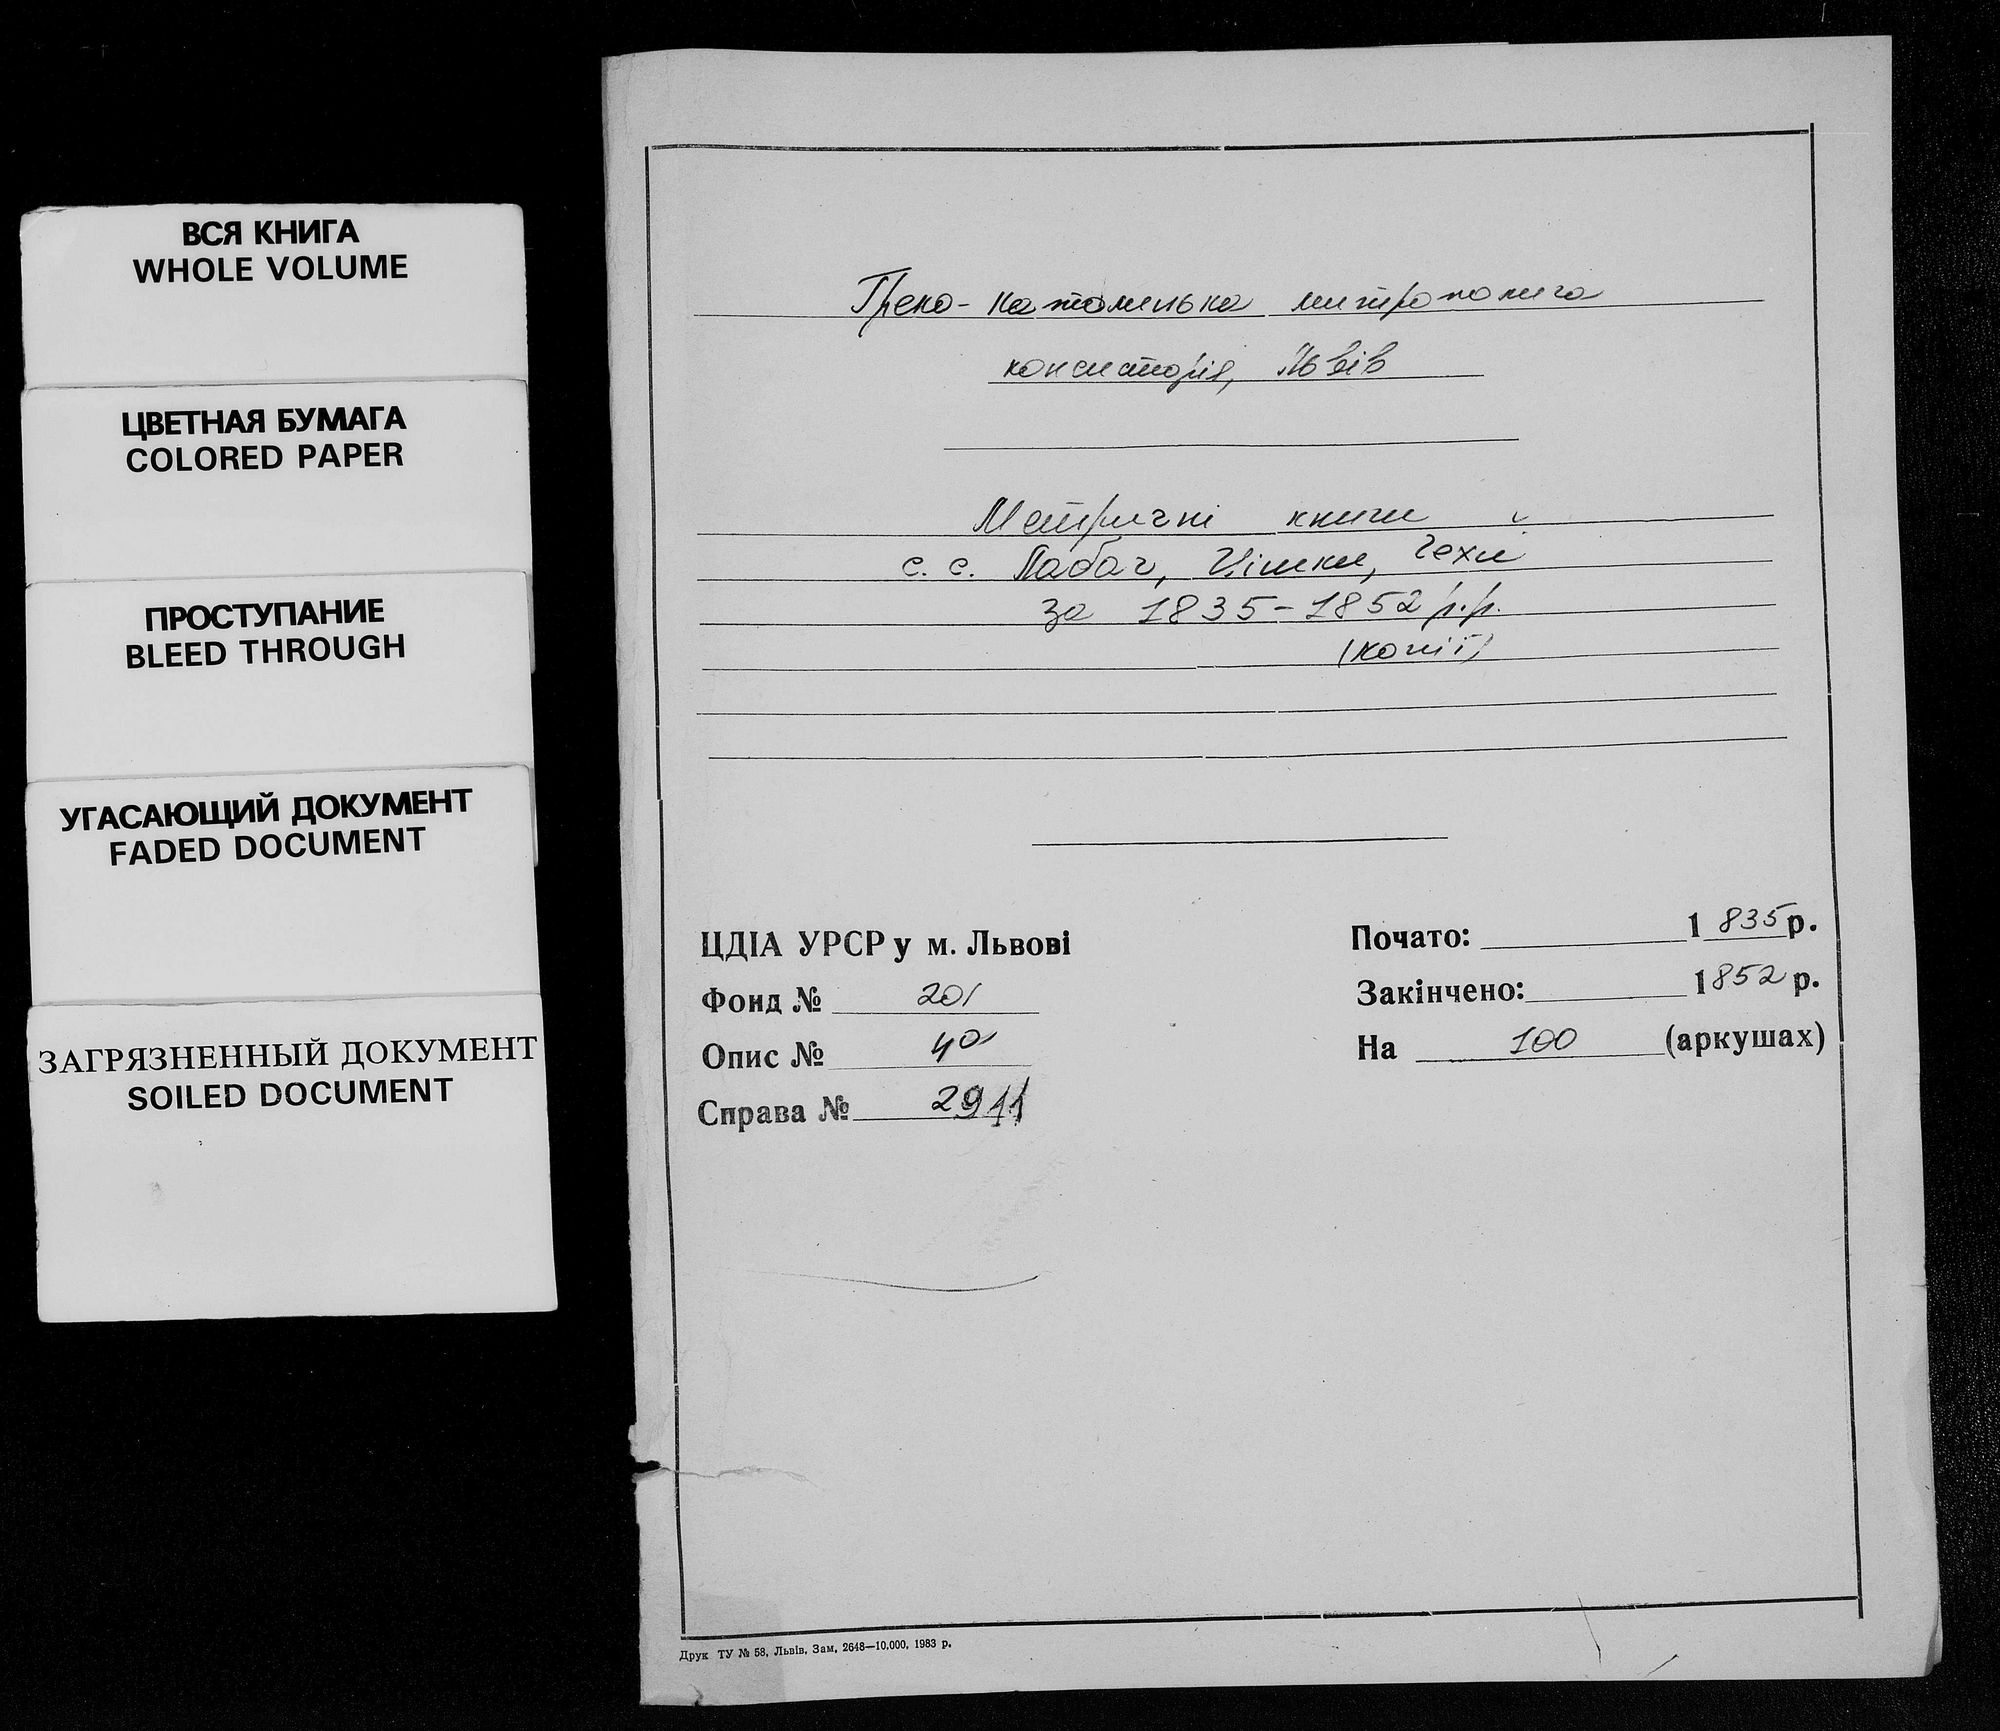 ВСЯ КНИГА
WHOLE VOLUME
ЦВЕТНАЯ БУМАГА
COLORED PAPER
ПРОСТУПАНИЕ
BLEED THROUGH
УГАСАЮЩИЙ ДОКУМЕНТ
FADED DOCUMENT
ЗАГРЯЗНЕННЫЙ ДОКУМЕНТ
SOILED DOCUMENT
Греко-католицька митрополича
консисторія, Львів
Метричні книги
с. с. Лабач, Цішки, Чехи
за 1835-1852 р.р.
(копії)
ЦДІА УРСР у м. Львові
Фонд № 201
Опис № 4а
Справа № 2911
Почато: 1835 р.
Закінчено: 1852 р.
На 100 (аркушах)
Друк ТУ № 58, Львів, Зам, 2648—10.000, 1983 р.